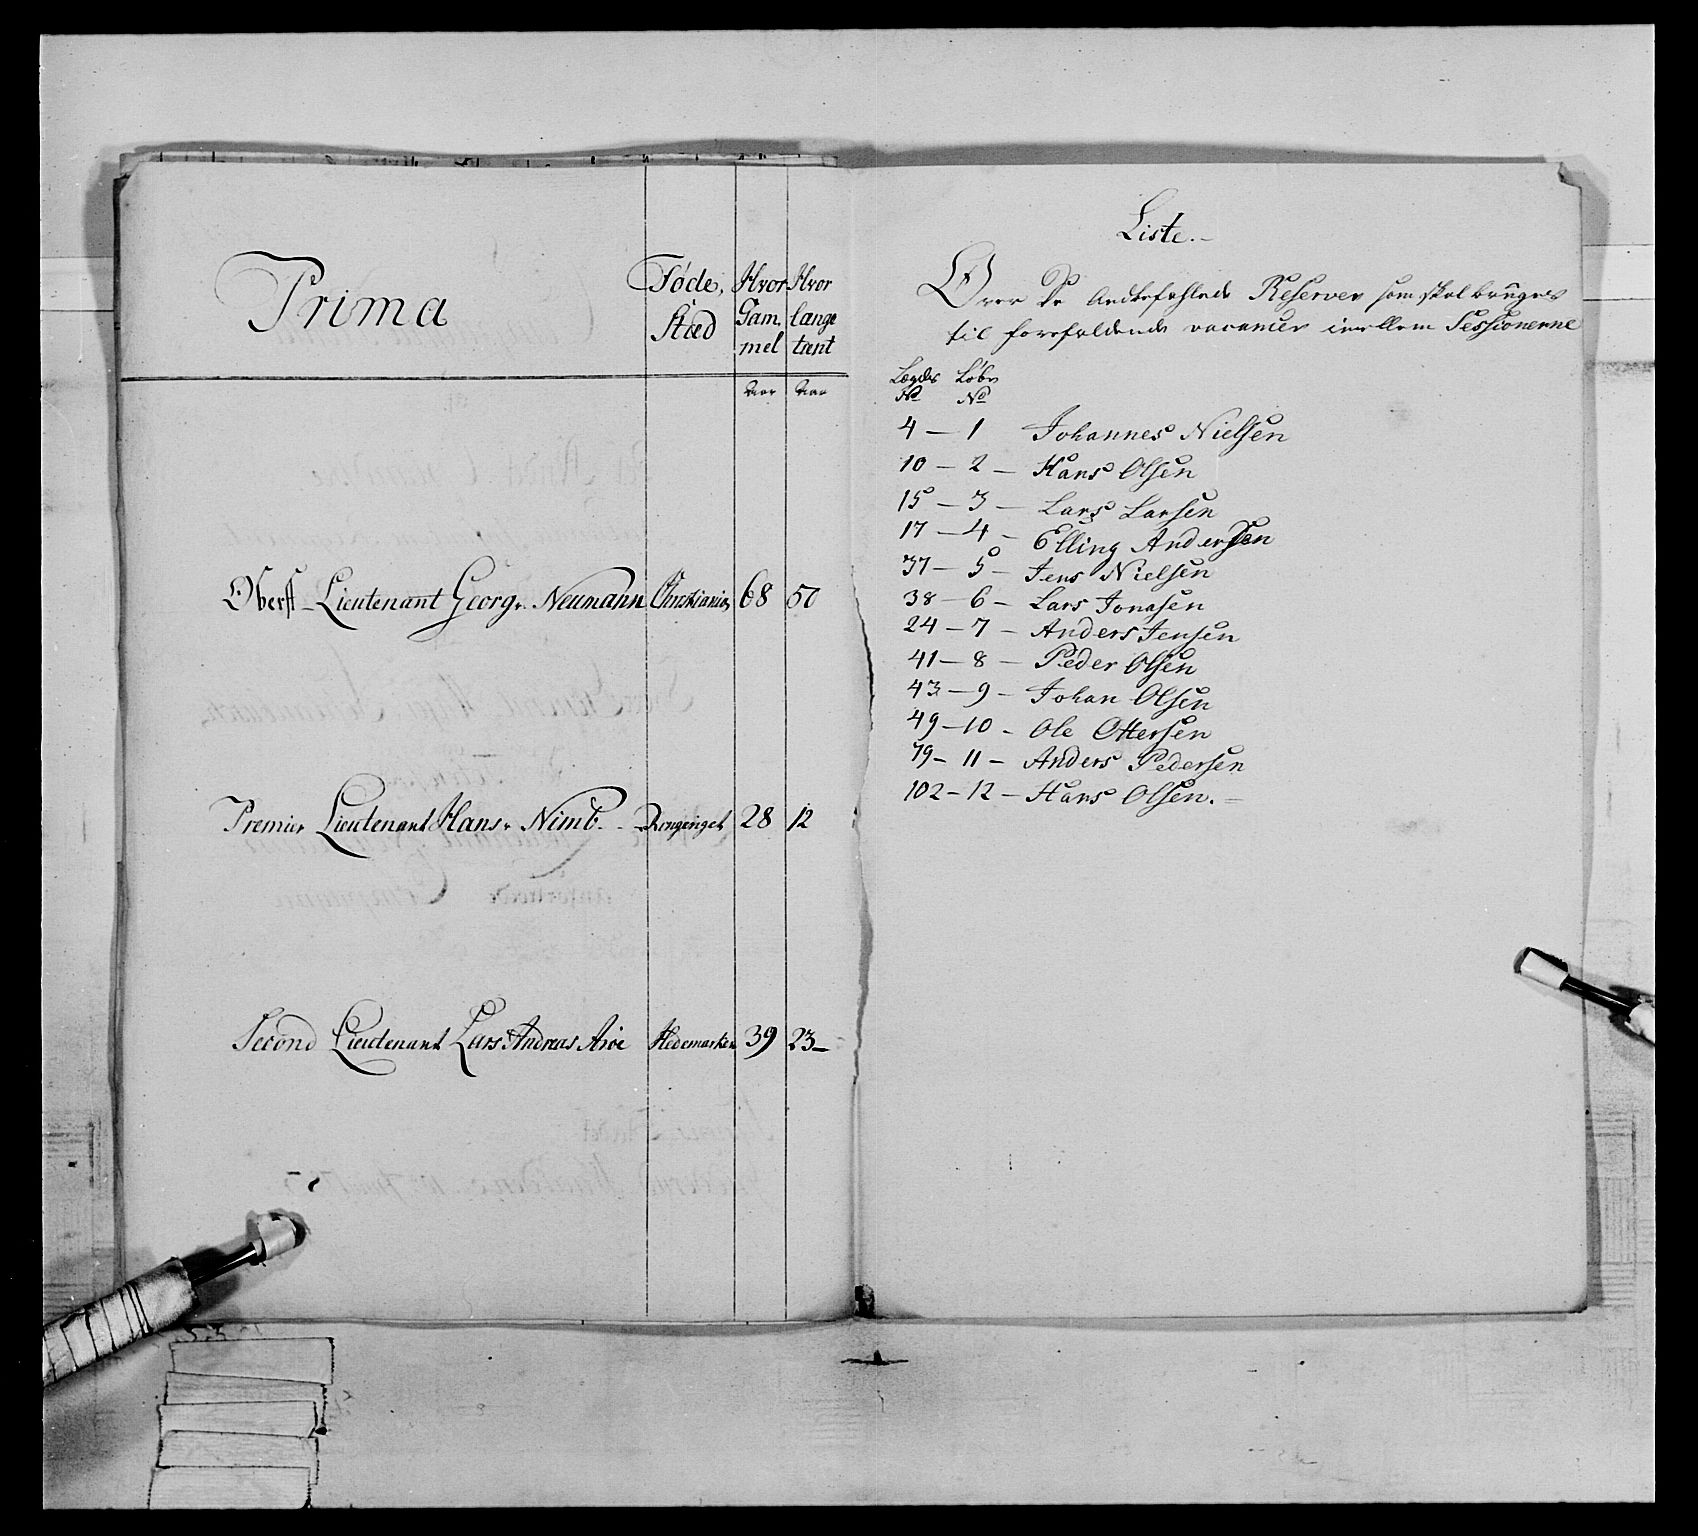 Prima
Føde,
Stæd
Hvor
Gam,
mel
Hvor
længe
tient
Aar
Aar
Oberst-Lieutenant Georg v. Neumann Christiania 68 50
Premier Lieutenant Hans v. Nimb - Ringeriget 28 12
Second Lieutenant Lars Andreas Aroe Hedemarken 39 23-
Liste.-
Over De Anbefahlede Reserver som skal brúges
til forefaldende vacancer imellem Sessionerne
Lægdes Løbe
No No
4 - 1 Johannes Nielsen
10 - 2 - Hans Olsen
15 - 3 - Lars Larsen
17 - 4 - Elling Andersen
37 - 5 - Jens Nielsen
38 - 6 - Lars Jonasen
24 - 7 - Anders Jensen
41 - 8 - Peder Olsen
43 - 9 - Johan Olsen
49 - 10 - Ole Ottersen
79 - 11 - Anders Pedersen
102 - 12 - Hans Olsen.-